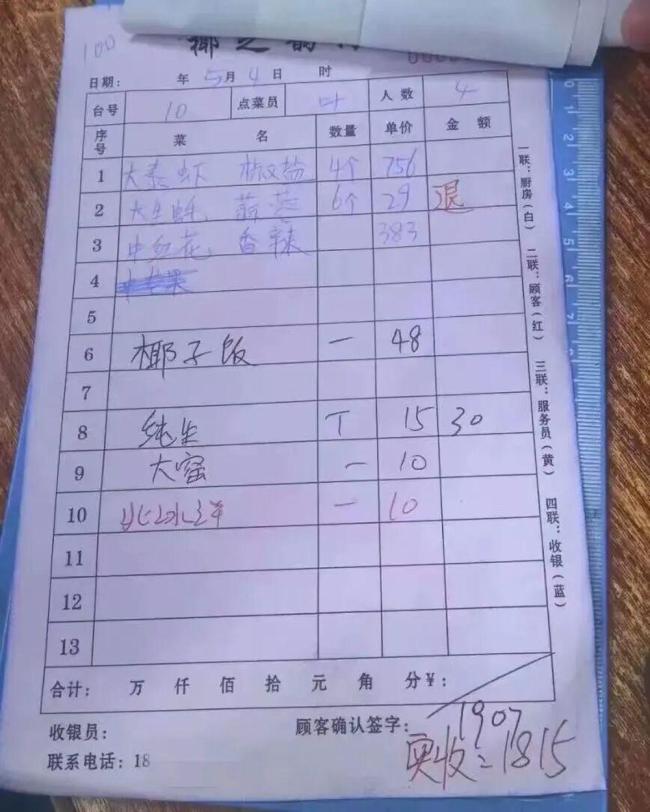 100
椰之韵
日期: 年 5月 4日 时
台号 10 点菜员 叶 人数 4
序号 菜名 数量 单价 金额
1 大泰虾 椒盐 4个 756
2 大生蚝 蒜蓉 6个 29 退
3 中红花 香辣 383
4
5
6 椰子饭 一 48
7
8 纯生 T 15 30
9 大窑 一 10
10 北冰洋 一 10
11
12
13
合计: 万 仟 佰 拾 元 角 分¥:
1907
收银员: 顾客确认签字:
实收=1815
联系电话: 18
一联:厨房(白) 二联:顾客(红) 三联:服务员(黄) 四联:收银(蓝)